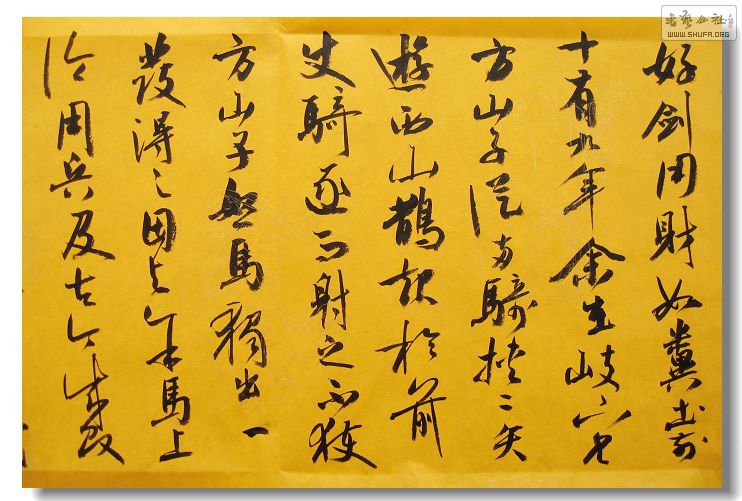 好劍用財如糞土前
十有九年余在岐下見
方山子從兩騎挾二矢
遊西山鵲起於前
使騎逐而射之不獲
方山子怒馬獨出一
發得之因与余馬上
論用兵及古今成敗
書藝公社
WWW.SHUFA.ORG